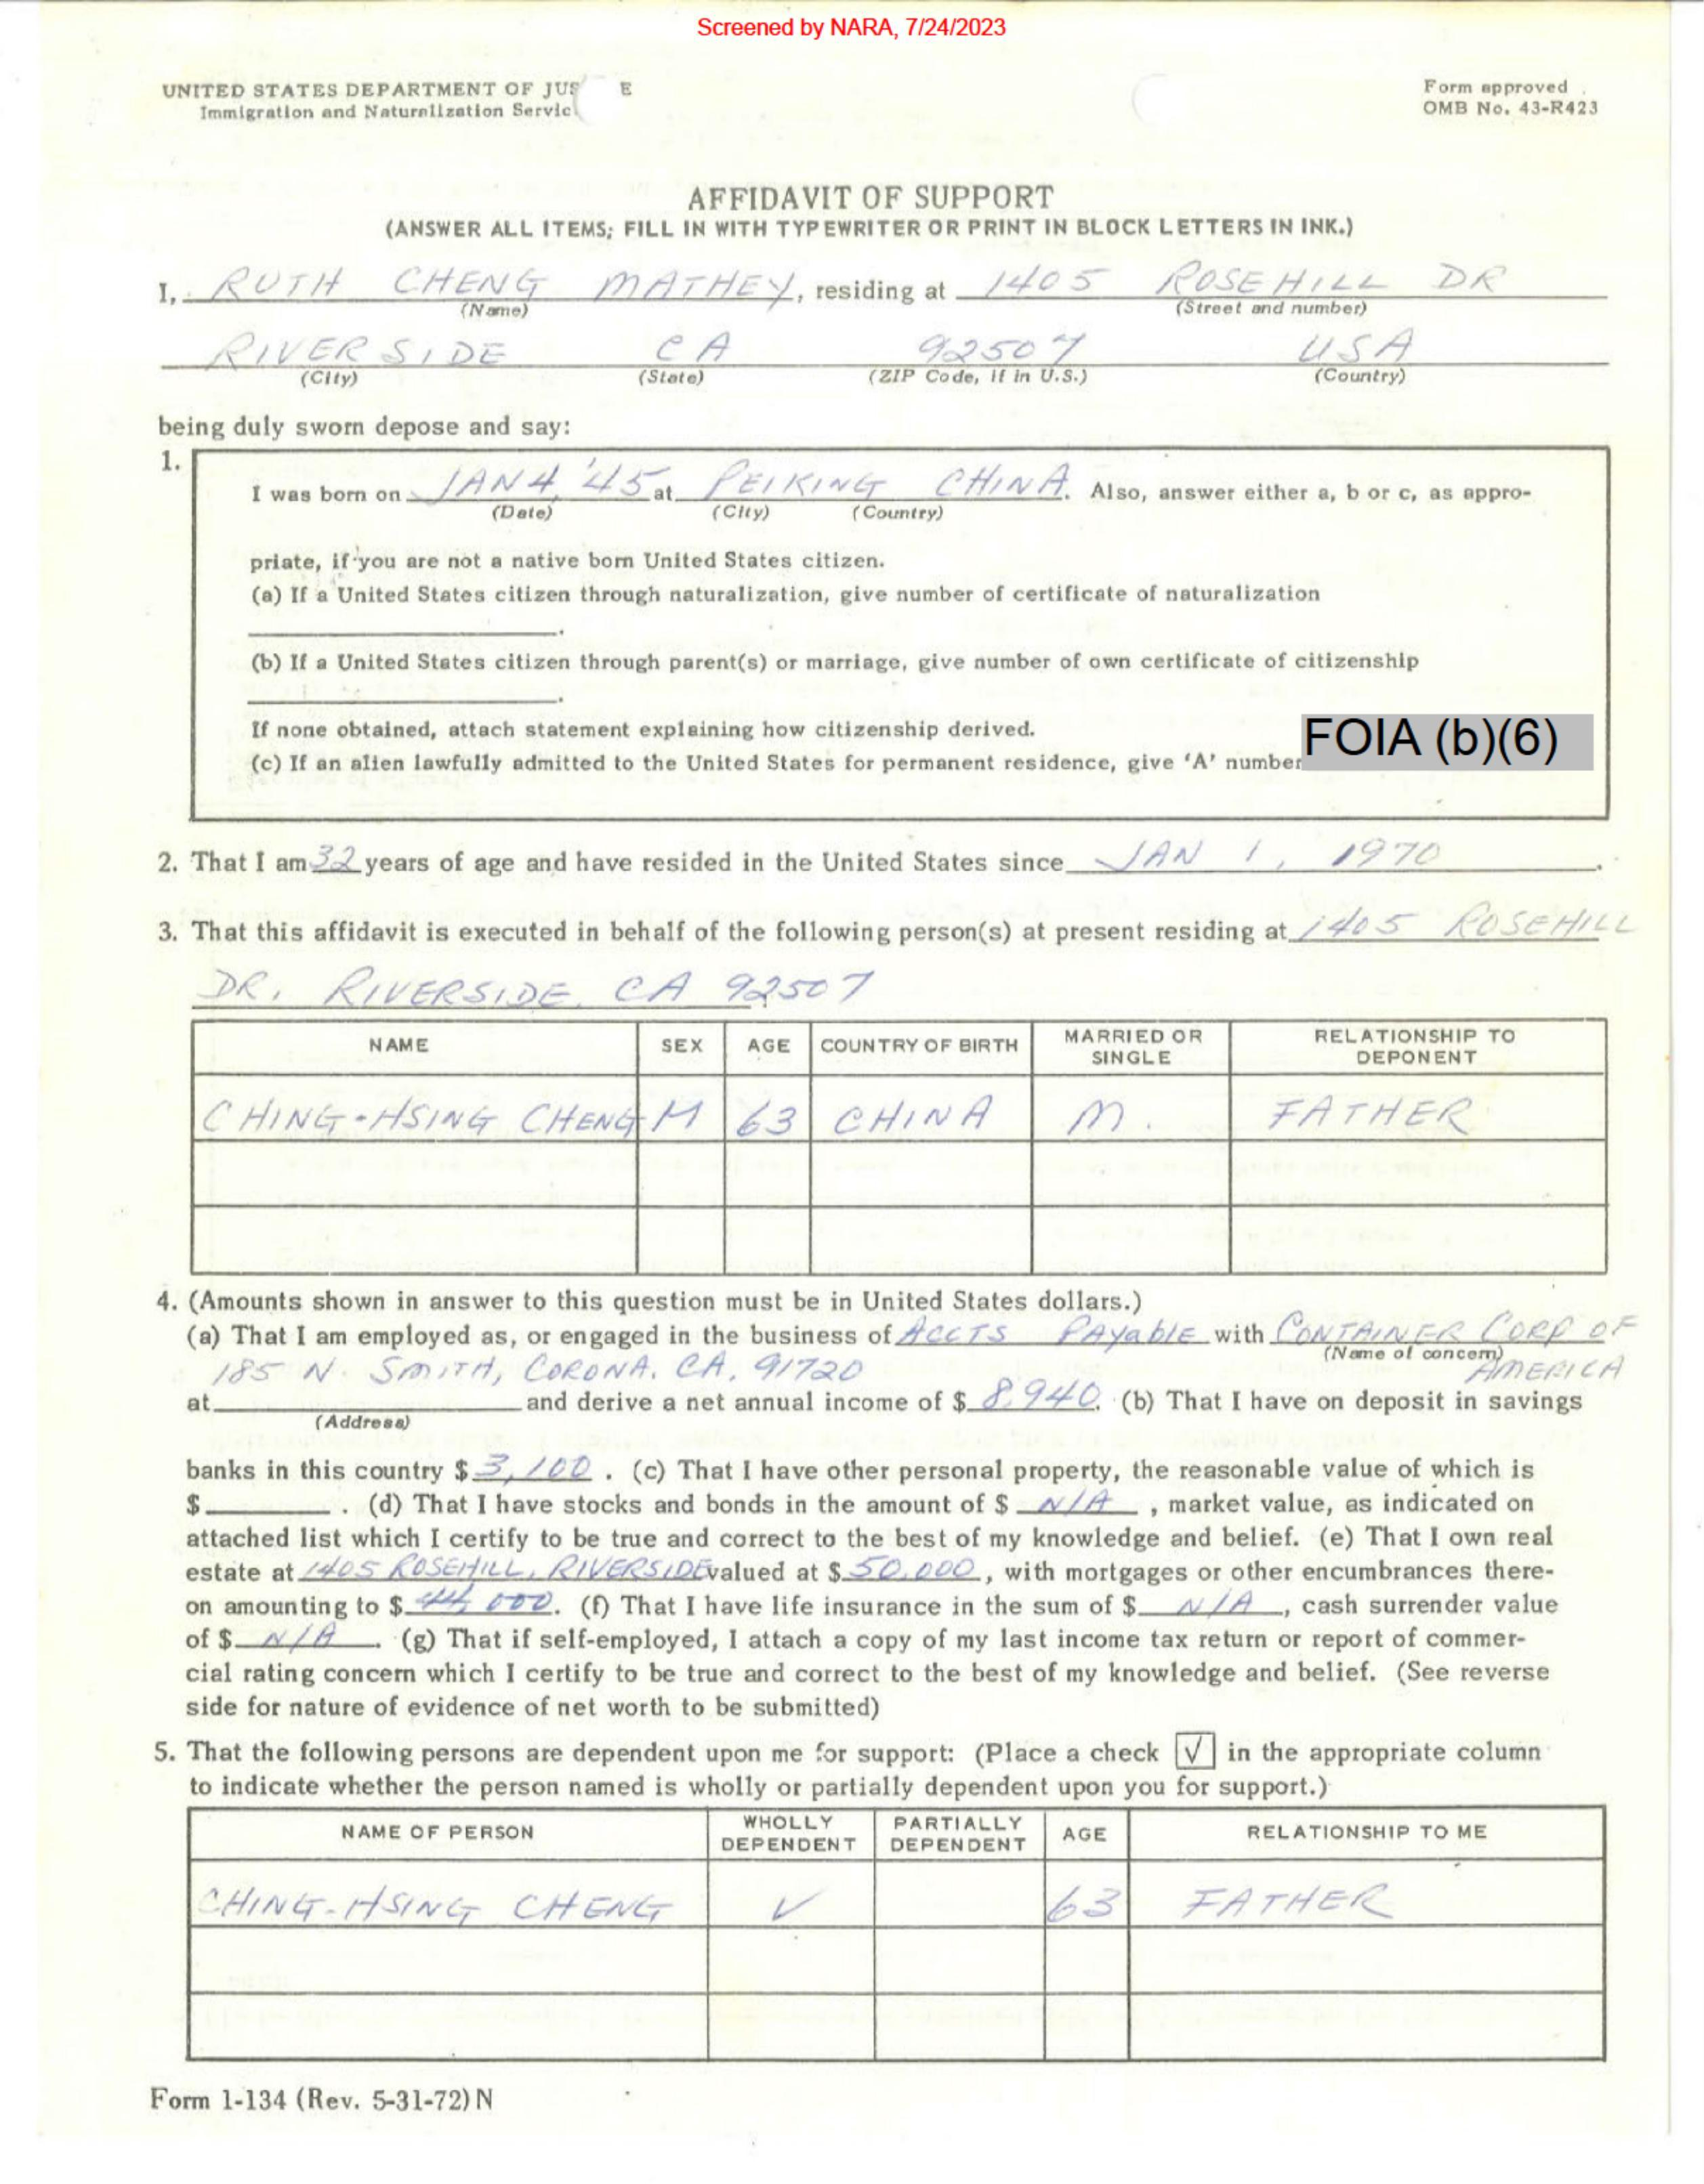 Screened by NARA, 7/24/2023
UNITED STATES DEPARTMENT OF JUS E
Immigration and Naturalization Servic
Form approved
OMB No. 43-R423
AFFIDAVIT OF SUPPORT
(ANSWER ALL ITEMS; FILL IN WITH TYPEWRITER OR PRINT IN BLOCK LETTERS IN INK.)
I, RUTH CHENG MATHEY, residing at 1405 ROSEHILL DR
(Name) (Street and number)
RIVERSIDE CA 92507 USA
(City) (State) (ZIP Code, if in U.S.) (Country)
being duly sworn depose and say:
1.
I was born on JAN 4, '45 at PEIKING CHINA. Also, answer either a, b or c, as appro-
(Date) (City) (Country)
priate, if you are not a native born United States citizen.
(a) If a United States citizen through naturalization, give number of certificate of naturalization
.
(b) If a United States citizen through parent(s) or marriage, give number of own certificate of citizenship
.
If none obtained, attach statement explaining how citizenship derived.
(c) If an alien lawfully admitted to the United States for permanent residence, give 'A' number FOIA (b)(6)
2. That I am 32 years of age and have resided in the United States since JAN 1, 1970.
3. That this affidavit is executed in behalf of the following person(s) at present residing at 1405 ROSEHILL
DR. RIVERSIDE CA 92507
NAME SEX AGE COUNTRY OF BIRTH MARRIED OR SINGLE RELATIONSHIP TO DEPONENT
CHING-HSING CHENG M 63 CHINA M. FATHER
4. (Amounts shown in answer to this question must be in United States dollars.)
(a) That I am employed as, or engaged in the business of ACCTS PAYABLE with CONTAINER CORP OF
(Name of concern)
185 N. SMITH, CORONA, CA, 91720 AMERICA
at and derive a net annual income of $ 8,940. (b) That I have on deposit in savings
(Address)
banks in this country $ 3,100. (c) That I have other personal property, the reasonable value of which is
$ . (d) That I have stocks and bonds in the amount of $ N/A, market value, as indicated on
attached list which I certify to be true and correct to the best of my knowledge and belief. (e) That I own real
estate at 1405 ROSEHILL, RIVERSIDE valued at $ 50,000, with mortgages or other encumbrances there-
on amounting to $ 44,000. (f) That I have life insurance in the sum of $ N/A, cash surrender value
of $ N/A. (g) That if self-employed, I attach a copy of my last income tax return or report of commer-
cial rating concern which I certify to be true and correct to the best of my knowledge and belief. (See reverse
side for nature of evidence of net worth to be submitted)
5. That the following persons are dependent upon me for support: (Place a check √ in the appropriate column
to indicate whether the person named is wholly or partially dependent upon you for support.)
NAME OF PERSON WHOLLY DEPENDENT PARTIALLY DEPENDENT AGE RELATIONSHIP TO ME
CHING-HSING CHENG √ 63 FATHER
Form 1-134 (Rev. 5-31-72) N